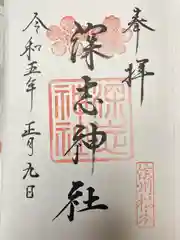 奉拝
深志神社
令和五年
正月九日
深志
神社